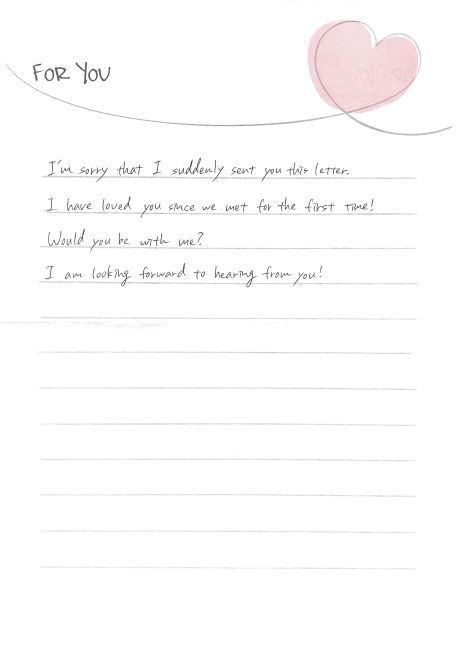 FOR YOU
I'm sorry that I suddenly sent you this letter.
I have loved you since we met for the first time!
Would you be with me?
I am looking forward to hearing from you!